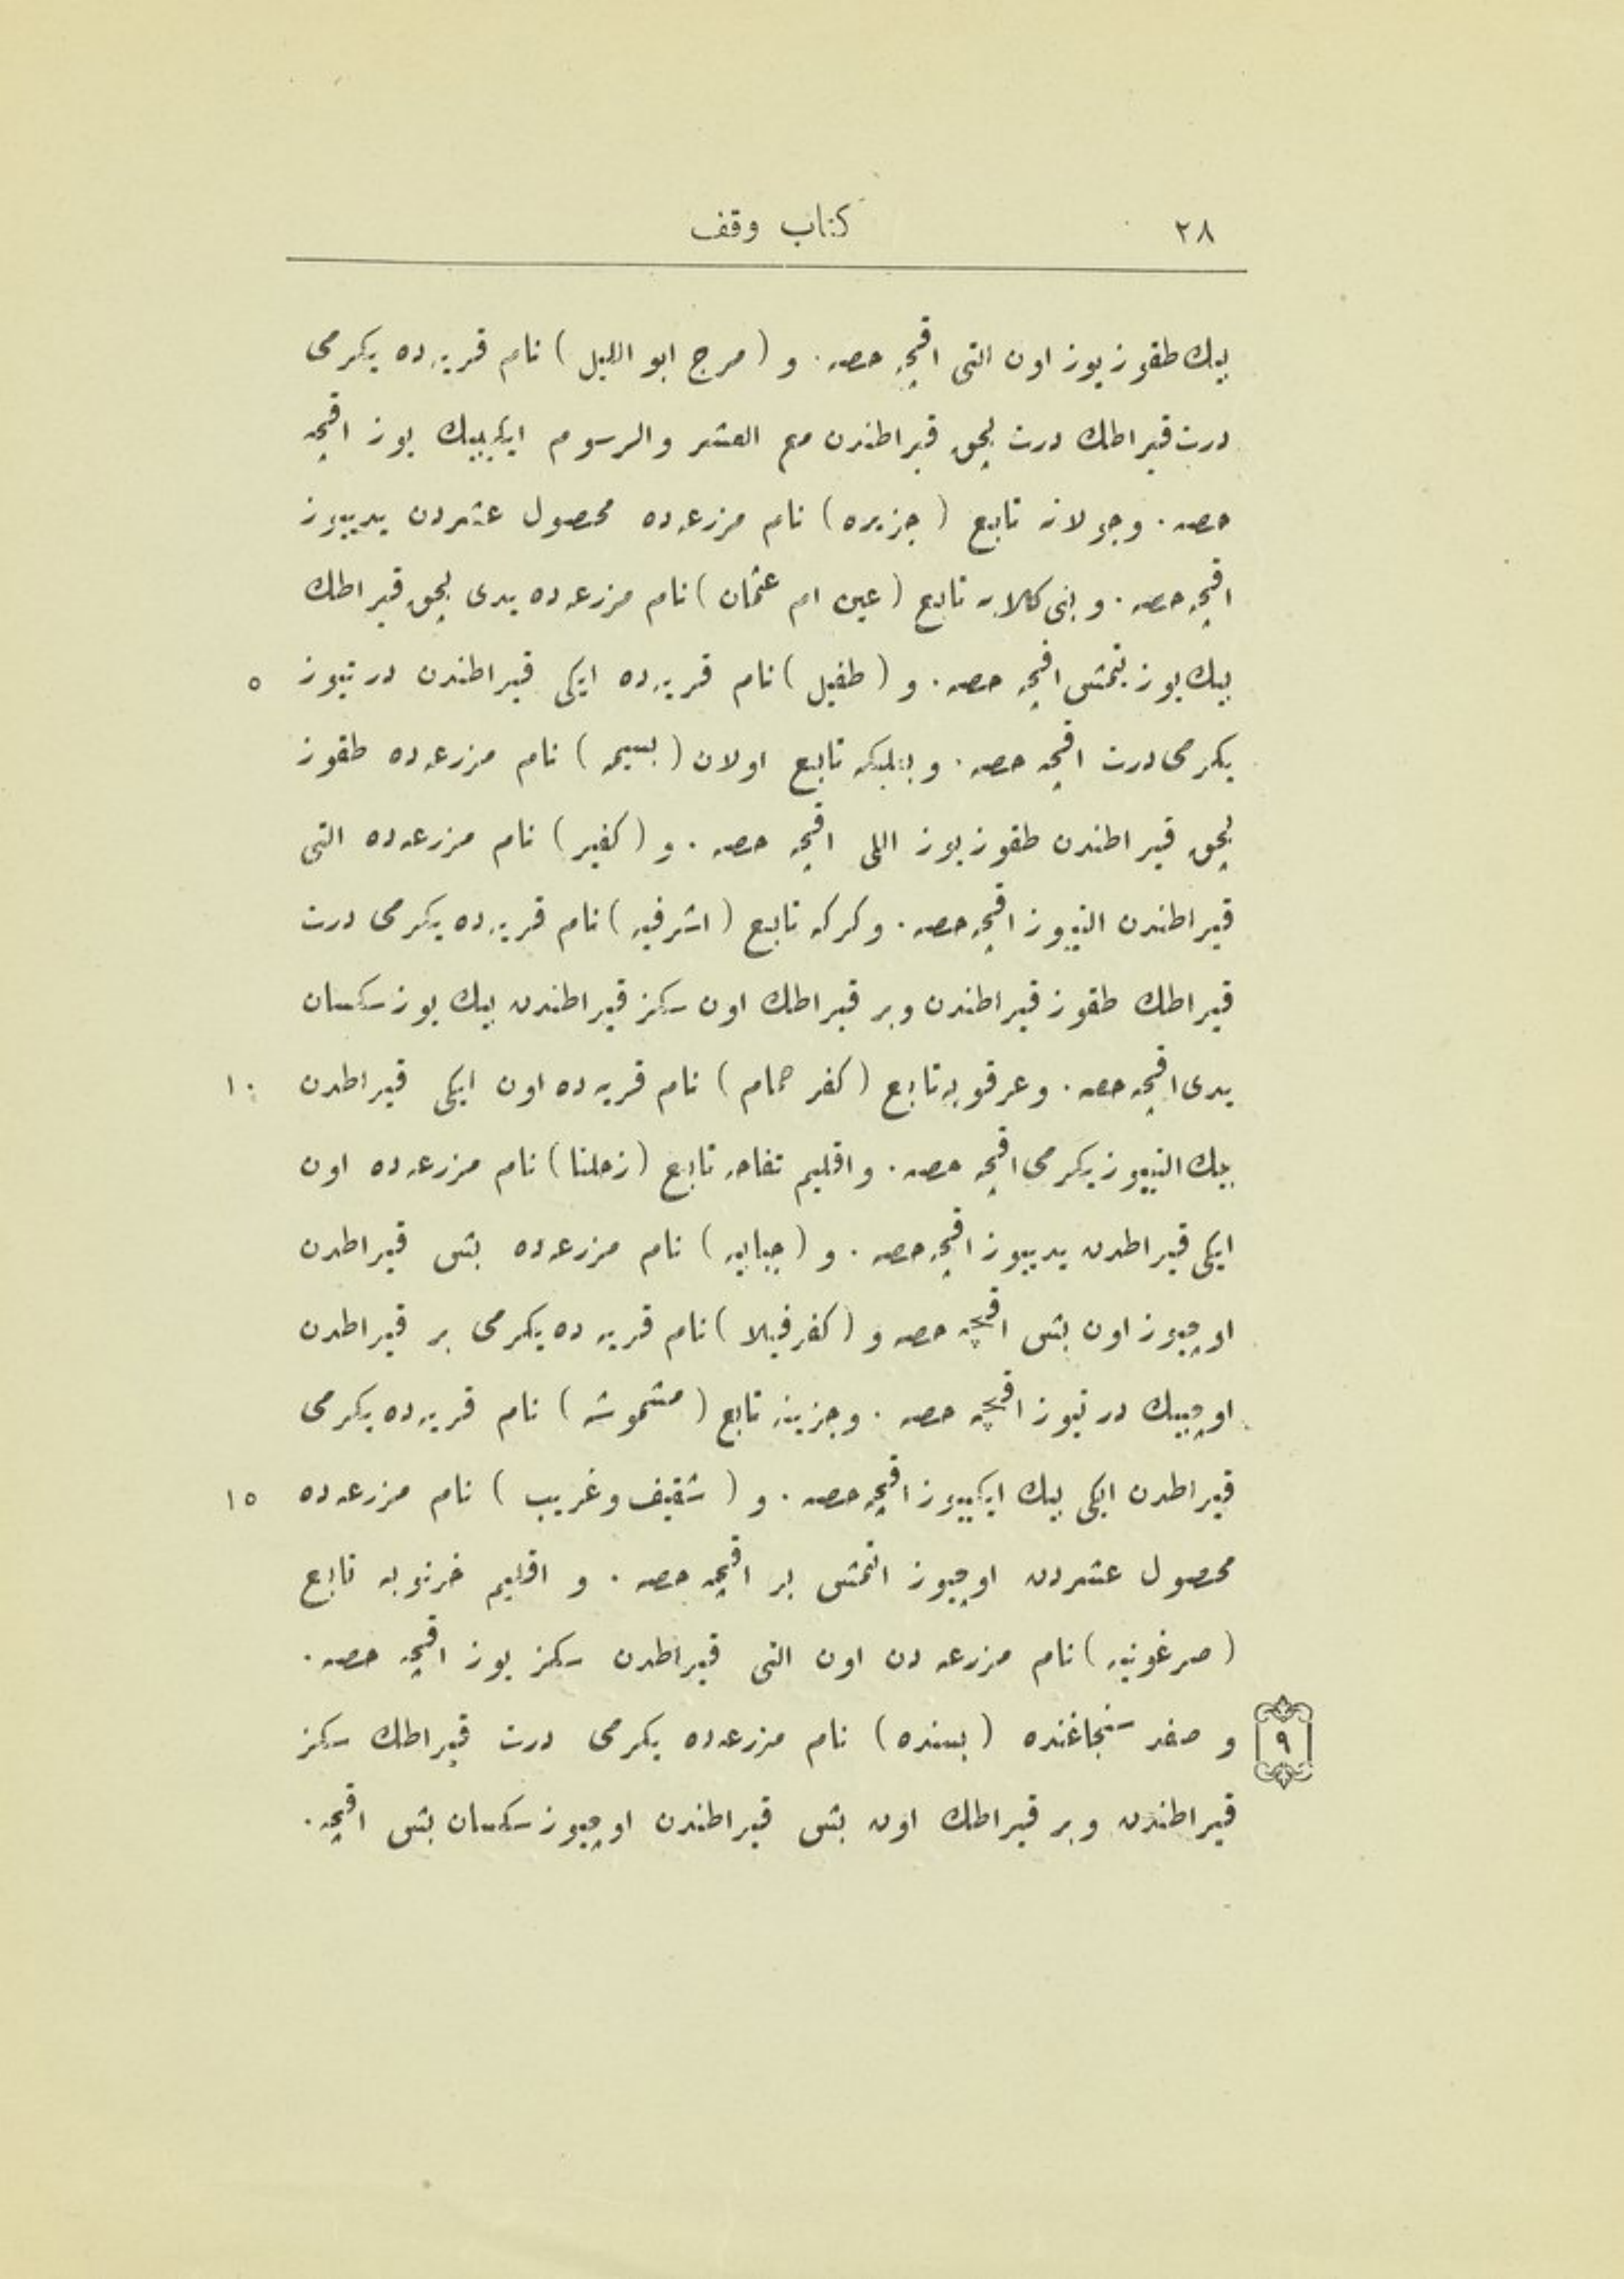 ٢٨
كتاب وقف
بيك طقوز يوز اون التى اقچه حصه . و ( مرج ابو الليل ) نام قريه ده يكرمى
درت قيراطك درت بچق قيراطندن مع العشر والرسوم ايكيبيك يوز اقچه
حصه . وجولانه تابع ( جزيره ) نام مزرعه ده محصول عشردن يدييوز
اقچه حصه . و بنى كلابه تابع ( عين ام عثمان ) نام مزرعه ده يدى بچق قيراطك
بيك يوز يتمش اقچه حصه . و ( طفيل ) نام قريه ده ايكى قيراطندن درتيوز
٥
يكرمى درت اقچه حصه . و بعلبكه تابع اولان ( بسيمه ) نام مزرعه ده طقوز
بچق قيراطندن طقوز يوز اللى اقچه حصه . و ( كفير ) نام مزرعه ده التى
قيراطندن التييوز اقچه حصه . وكركه تابع ( اشرفيه ) نام قريه ده يكرمى درت
قيراطك طقوز قيراطندن وبر قيراطك اون سكز قيراطندن بيك يوز سكسان
يدى اقچه حصه . وعرقوبه تابع ( كفر حمام ) نام قريه ده اون ايكى قيراطدن
١٠
بيك التييوز يكرمى اقچه حصه . واقليم تفاحه تابع ( زحلتا ) نام مزرعه ده اون
ايكى قيراطدن يدييوز اقچه حصه . و ( جبابيه ) نام مزرعه ده بش قيراطدن
اوچيوز اون بش اقچه حصه و ( كفر فيلا ) نام قريه ده يكرمى بر قيراطدن
اوچبيك درتيوز اقچه حصه . وجزينه تابع ( مشموشه ) نام قريه ده يكرمى
قيراطدن ايكى بيك ايكييوز اقچه حصه . و ( شقيف وغريب ) نام مزرعه ده
١٥
محصول عشردن اوچيوز التمش بر اقچه حصه . و اقليم خرنوبه تابع
( صرغونيه ) نام مزرعه دن اون التى قيراطدن سكز يوز اقچه حصه .
٩
و صفد سنجاغنده ( بسنده ) نام مزرعه ده يكرمى درت قيراطك سكز
قيراطندن وبر قيراطك اون بش قيراطندن اوچيوز سكسان بش اقچه .